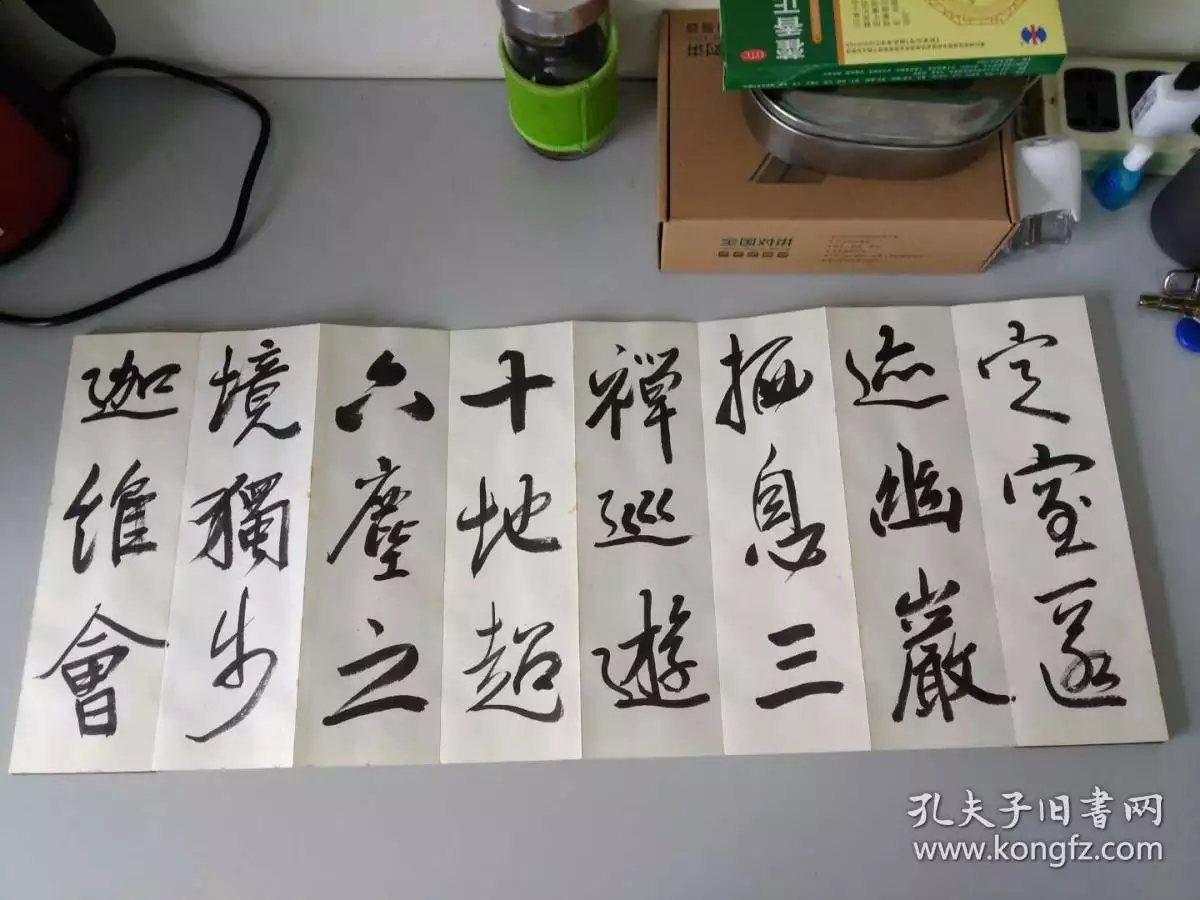 定室匿
迹幽巖
栖息三
禪巡遊
十地超
六塵之
境獨步
迦維會
藿香正
OTC
孔夫子旧书网
www.kongfz.com